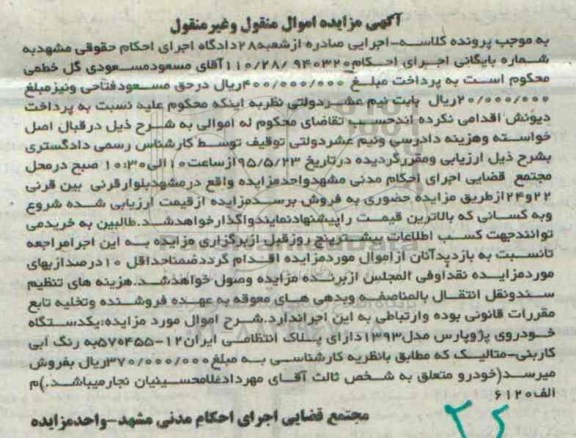 آگهی مزایده اموال منقول وغیرمنقول
به موجب پرونده کلاسه-اجرایی صادره ازشعبه۲۸دادگاه اجرای احکام حقوقی مشهدبه
شماره بایگانی اجرای احکام۹۴۰۳۲۰ /۱۱۰/۲۸آقای مسعودمسعودی گل خطمی
محکوم است به پرداخت مبلغ ۴۰۰/۰۰۰/۰۰۰ریال درحق مسعودفتاحی ونیزمبلغ
۲۰/۰۰۰/۰۰۰ریال بابت نیم عشردولتی نظربه اینکه محکوم علیه نسبت به پرداخت
دیونش اقدامی نکرده اندحسب تقاضای محکوم له اموالی به شرح ذیل درقبال اصل
خواسته وهزینه دادرسی ونیم عشردولتی توقیف توسط کارشناس رسمی دادگستری
بشرح ذیل ارزیابی ومقررگردیده درتاریخ ۹۵/۵/۲۳ ازساعت۱۰الی۱۰:۳۰ صبح درمحل
مجتمع قضایی اجرای احکام مدنی مشهدواحدمزایده واقع درمشهدبلوارقرنی بین قرنی
۲۲و۲۴ازطریق مزایده حضوری به فروش برسدمزایده ازقیمت ارزیابی شده شروع
وبه کسانی که بالاترین قیمت راپیشنهادنمایندواگذارخواهدشد.طالبین به خریدمی
توانندجهت کسب اطلاعات بیشترپنج روزقبل ازبرگزاری مزایده به این اجرامراجعه
تانسبت به بازدیدآنان ازاموال موردمزایده اقدام گرددضمناحداقل ۱۰درصدازبهای
موردمزایده نقداوفی المجلس ازبرنده مزایده وصول خواهدشد.هزینه های تنظیم
سندونقل انتقال بالمناصفه وبدهی های معوقه به عهده فروشنده وتخلیه تابع
مقررات قانونی بوده وارتباطی به این اجراندارد.شرح اموال مورد مزایده:یکدستگاه
خودروی پژوپارس مدل۱۳۹۳دارای پلاک انتظامی ایران۱۲-۵۷۰۴۵۵به رنگ آبی
کاربنی-متالیک که مطابق بانظریه کارشناسی به مبلغ۳۷۰/۰۰۰/۰۰۰ریال بفروش
میرسد(خودرو متعلق به شخص ثالث آقای مهردادغلامحسینیان نجارمیباشد.)م
الف۶۱۲۰
مجتمع قضایی اجرای احکام مدنی مشهد-واحدمزایده